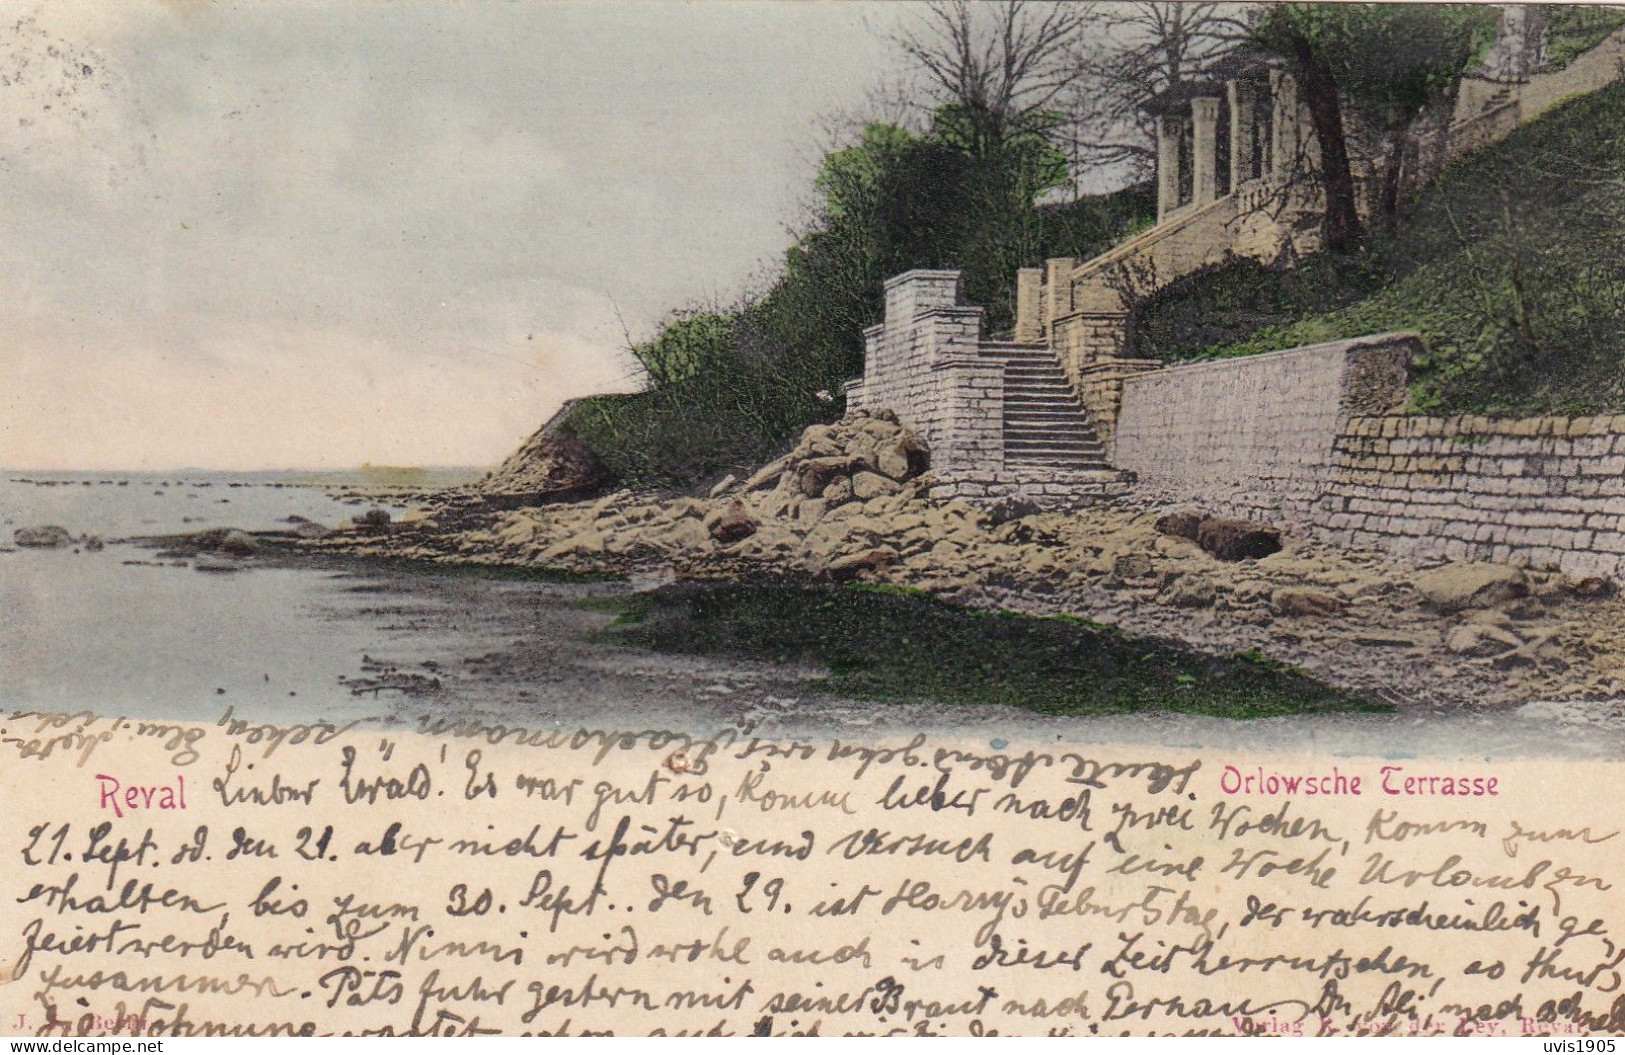 Heute Abend gehn wir „Flachsmann“ sehen,
Reval
Orlowsche Terrasse
Lieber Ewald! Es war gut so, komm lieber nach zwei Wochen, komm zum
21. Sept. od. den 21. aber nicht später, und versuch auf eine Woche Urlaub zu
erhalten, bis zum 30. Sept.. den 29. ist Harry's Geburtstag, der wahrscheinlich ge-
feiert werden wird. Ninni wird wohl auch in dieser Zeit herrutschen, so thut's
zusammen. Päts fuhr gestern mit seiner Braut nach Pernau. Du, Ali, mach schnell
die Wohnung wartet schon auf Dich
J. Berlin
Verlag von der Ley, Reval
uvis1905